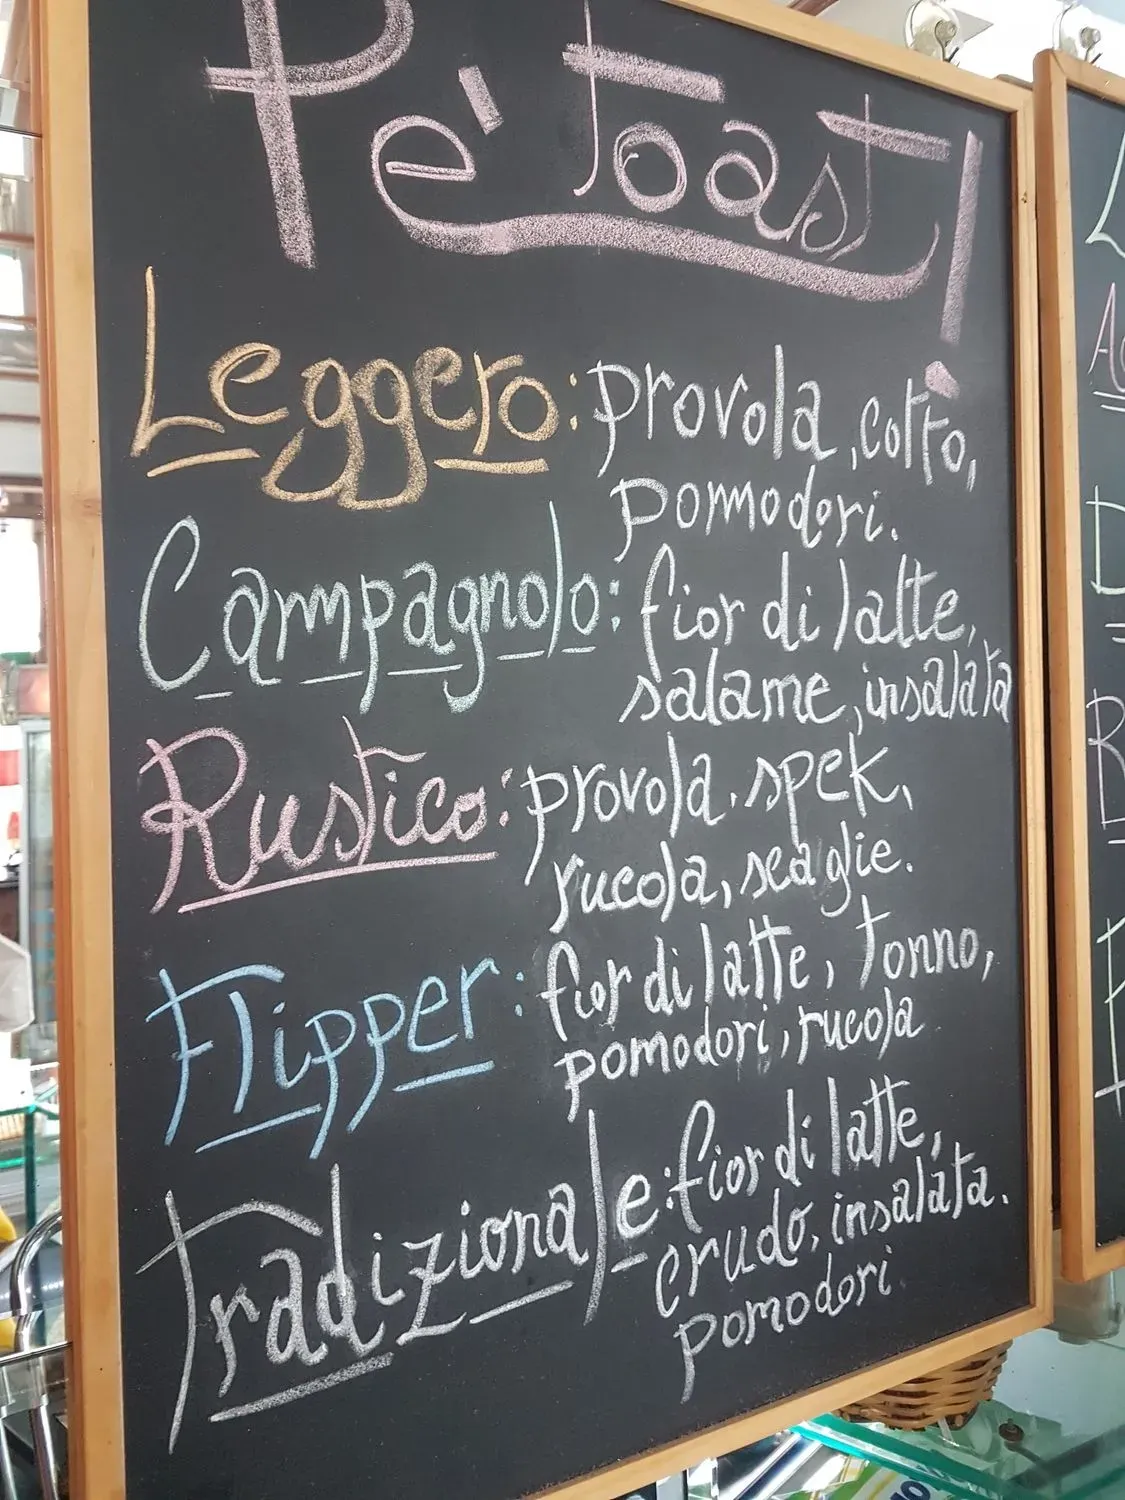 Pe' Toast!
Leggero: provola, cotto,
pommodori.
Campagnolo: fior di latte,
salame, insalata
Rustico: provola, spek,
rucola, scaglie.
Flipper: fior di latte, tonno,
pomodori, rucola
Tradizionale: fior di latte,
crudo, insalata.
pomodori